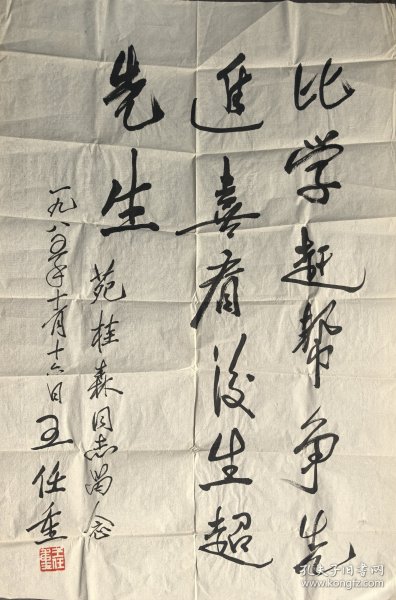 比学赶帮争先
進喜看後生超
先生
苑桂森同志留念
一九八五年十月十六日 王任重
王任重
孔夫子旧书网
www.kongfz.com